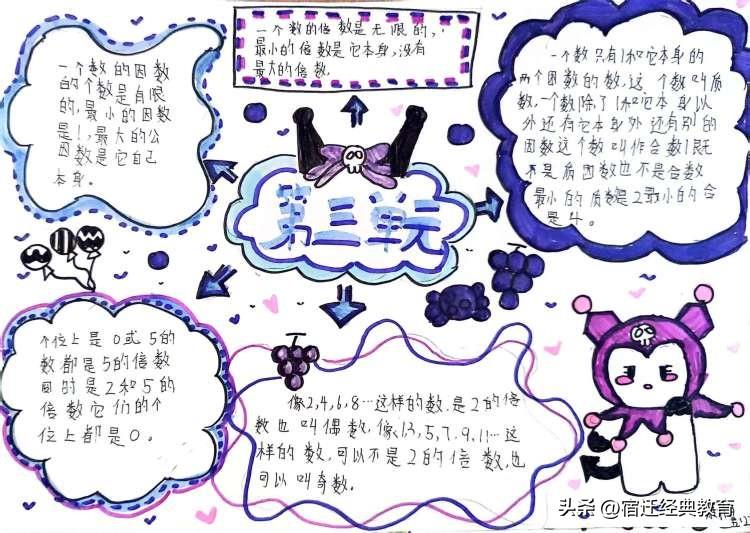 一个数的倍数是无限的,
最小的倍数是它本身,没有
最大的倍数.
一个数的因数
的个数是有限
的,最小的因数
是1,最大的公
因数是它自己
本身。
一个数只有1和它本身的
两个因数的数,这个数叫质
数,一个数除了1和它本身以
外还有它本身外还有别的
因数这个数叫作合数1既
不是质因数也不是合数
最小的质数是2最小的合
是4。
第三单元
个位上是0或5的
数都是5的倍数
同时是2和5的
倍数它们的个
位上都是0。
像2,4,6,8…这样的数.是2的倍
数也叫偶数,像1,3,5,7.9,11…这
样的数,可以不是2的倍数,也
可以叫奇数。
头条 @宿迁经典教育